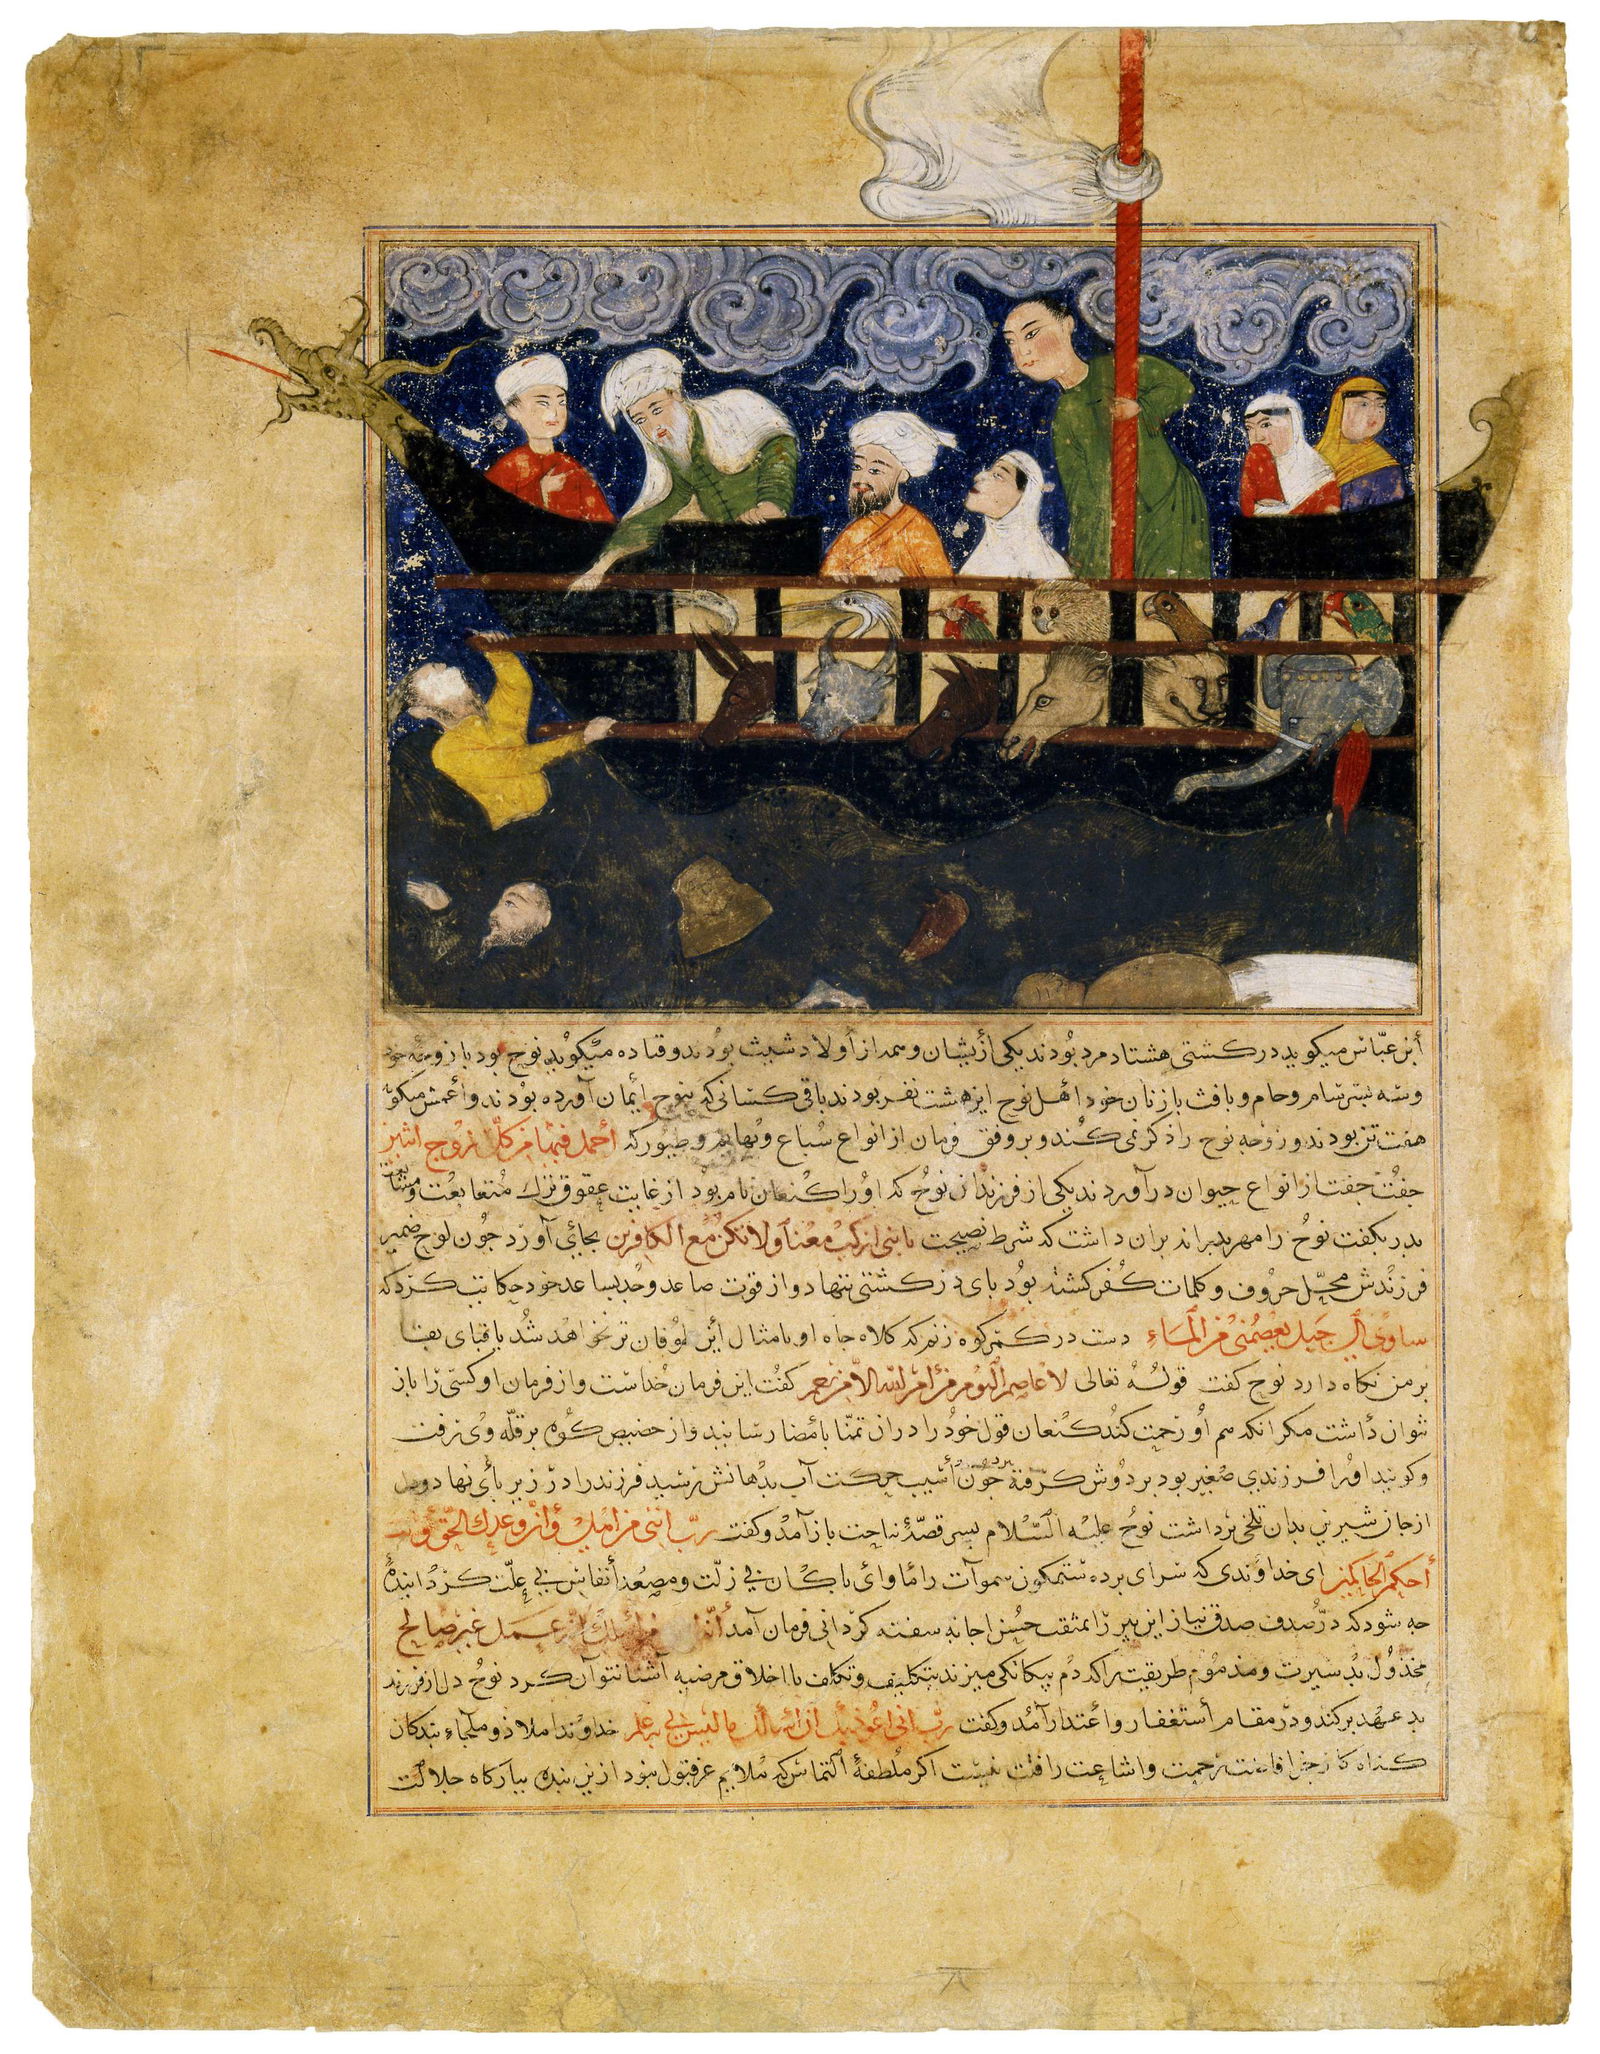 أبن عبّاس میکوید در کشتی هشتاد مرد بُودند یکی از یشان و سه از أولاد شیث بودند و قتاده میکوید نوح بود با زوجه خود
و سه پسر سام و حام و یافث با زنان خود أهل نوح این هشت نفر بودند باقی کسانی که بنوح ایمان آورده بودند و أعمش میکوید
هفت تن بودند و زوجه نوح را ذکر نمی کند و بر وفق فرمان از انواع سباع و بهایم و طیور که أحمل فیها من کلّ زوجین اثنین
جفت جفت از انواع حیوان در آوردند یکی از فرزندان نوح که او را کنعان نام بود از غایت عقوق ترك متابعت و مشایعت
پدر بکفت نوح را مهر پدر بران داشت که شرط نصیحت یا بنی ارکب معنا ولا تکن مع الکافرین بجای آورد جون لوح ضمیر
فرزندش محلّ حروف و کلمات کفر کشته بود پای در کشتی ننهاد و از قوت صاعد وحد ساعد خود حکایت کرد که
ساوی الی جبل یعصمنی من الماء دست در کمر کوه زنم که کلاه جاه او بامثال این طوفان تر نخواهد شد یا قبای بقا
بر من نکاه دارد نوح کفت قولُهُ تعالی لا عاصم الیوم من أمر الله الّا من رحم کفت این فرمان خداست و از فرمان او کسی را باز
نتوان داشت مکر انکه هم او رحمت کند کنعان قول خود را در ان تمنّا بأمضا رسانید و از حضیض کوه بر قلّه وی رفت
و کویند او را فرزندی صغیر بود بر دوش کرفته جون أسیب حرکت آب بدهانش رسید فرزند را در زیر پای نهاد و دل
از جان شیرین بدان تلخی برداشت نوح علیه السّلام بسر قصّۀ مناجت باز آمد و کفت ربّ انّ ابنی من اهلی و انّ وعدك الحقّ و انت
أحکم الحاکمین ای خداوندی که سرای پرده
جه شود که درّ صدف صدق نیاز این پیر را بمثقب حسن اجابه سفته کردانی فرمان آمد انّه لیس من أهلك انّه عمل غیر صالح
مخذول بد سیرت و مذموم طریقت را که دم بیکانکی میزند بتکلیف و تکلف با اخلاق مرضیه آشنا نتوان کرد نوح دل از فرزند
بد عهد برکند و در مقام أستغفار و أعتذار آمد و کفت ربّ انی اعوذ بك ان اسألك ما لیس لی به علم خداوندا ملاذ و ملجاء بندکان
کناه کار جز افاضت رحمت و اشاعت رافت نیست اکر ملطفۀ التماس که ملایم عز قبول نبود ازین بنده ببارکاه جلالت